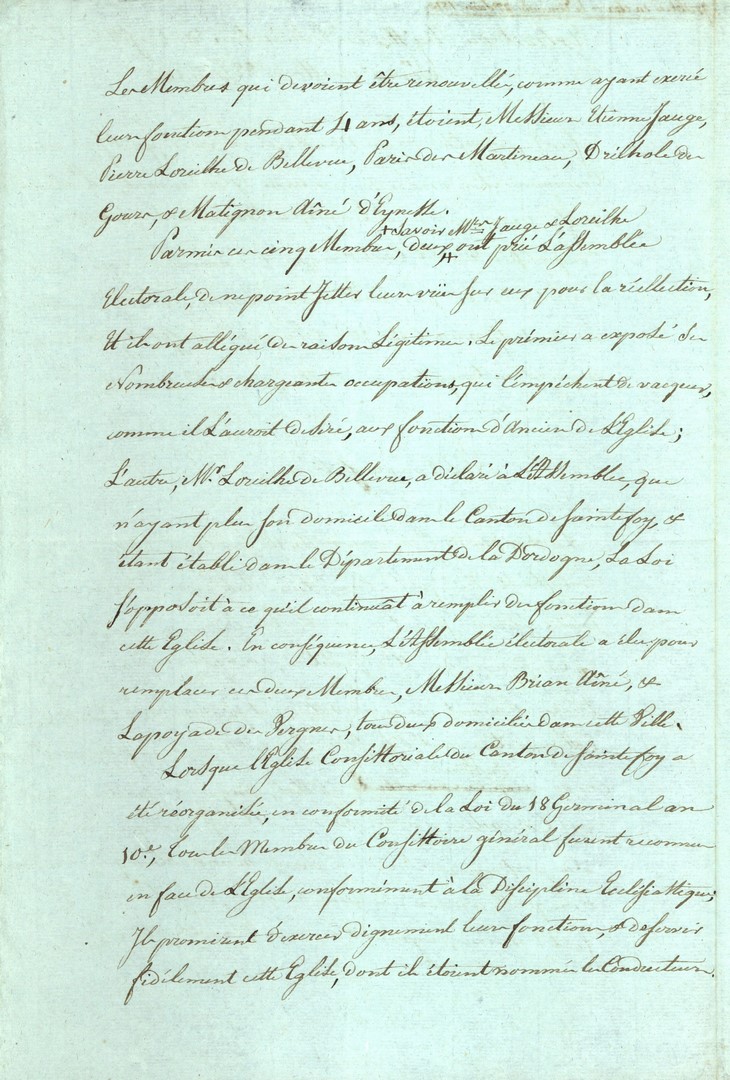 Les Membres qui devoient être renouvellés, comme ayant exercé
leurs fonctions pendant 4 ans, étoient, Messieurs Etienne Jauge,
Pierre Loreilhe de Bellevue, Paris des Martineaux, Drilhole des
Gours, & Matignon Aîné d'Eynesse.
+ Savoir Mrs Jauge & Loreilhe
Parmis ces cinq Membres, deux + ont prié L'assemblée
Electorale, de ne point Jetter leurs vües sur eux pour la réellection,
Et ils ont allégué des raisons Légitimes. Le prémier a exposé Ses
Nombreuses & chargeantes occupations, qui l'empéchent de vacquer,
comme il L'auroit desiré, aux fonctions d'Ancien de L'Eglise;
L'autre, Mr. Loreilhe de Bellevue, a déclaré à L'Assemblée, que
n'ayant plus son domicile dans le Canton de Sainte foy, &
étant établi dans le Département de la Dordogne, La Loi
s'opposoit à ce qu'il continuât à remplir des fonctions dans
cette Eglise. En conséquence, L'Assemblée électorale a élu, pour
remplacer ces deux Membres, Messieurs Brian Aîné, &
Lapoyade des Vergnes, tous deux domiciliés dans cette Ville.
Lorsque l'Eglise Consistoriale du Canton de Sainte foy a
été réorganisée, en conformité de la Loi du 18 Germinal an
10.e, Tous les Membres du Consistoire général furent reconnus
en face de L'Eglise, conformément à la Discipline Ecclésiastique;
Ils promirent d'exercer dignement leurs fonctions, & de servir
fidélement cette Eglise, dont ils étoient nommés les Conducteurs.